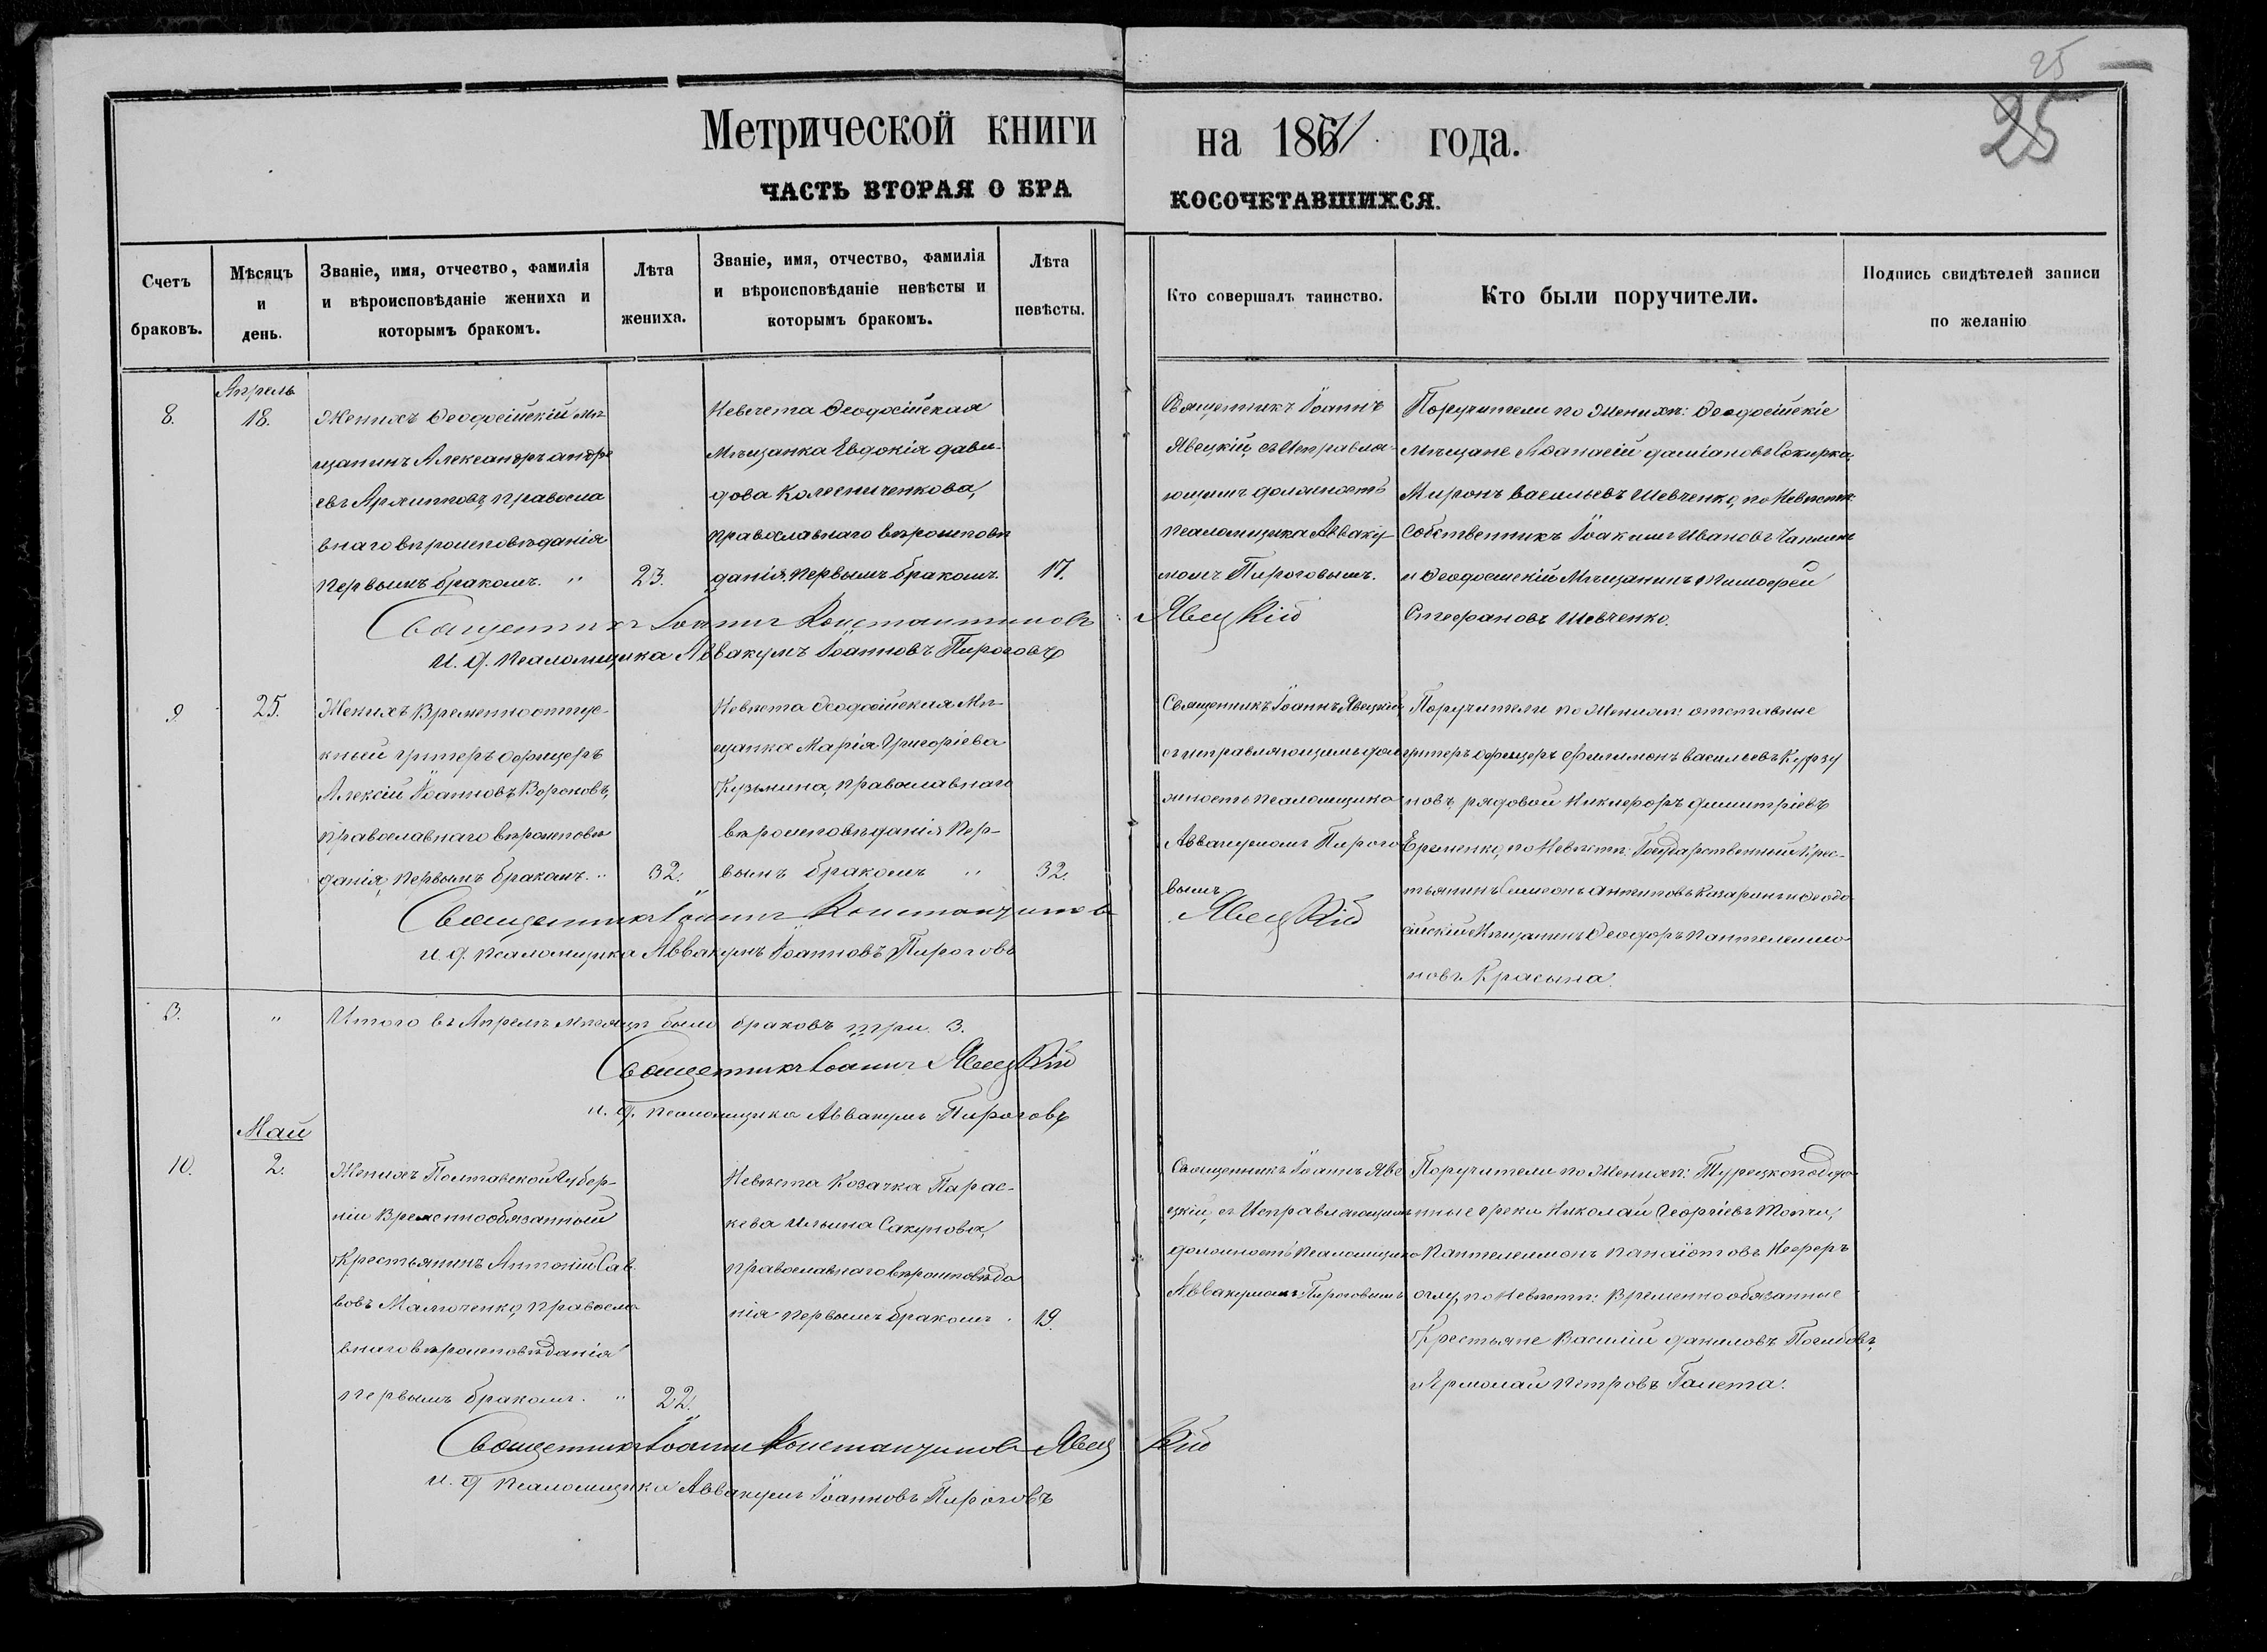 25
25
Метрической книги на 1871 года.
ЧАСТЬ ВТОРАЯ О БРАКОСОЧЕТАВШИХСЯ.
Счетъ браковъ.
Мѣсяцъ и день.
Званіе, имя, отчество, фамилія и вѣроисповѣданіе жениха и которымъ бракомъ.
Лѣта жениха.
Званіе, имя, отчество, фамилія и вѣроисповѣданіе невѣсты и которымъ бракомъ.
Лѣта невѣсты.
Кто совершалъ таинство.
Кто были поручители.
Подпись свидѣтелей записи по желанію
8.
Апрель
18.
Женихъ Ѳеодосійскій мѣ-
щанинъ Александръ андре
евъ Архиповъ, правосла
внаго вѣроисповѣданія
первымъ бракомъ. "
23.
Невѣста Ѳеодосійская
Мѣщанка Евдокія дави-
дова Колесниченкова,
православнаго вѣроисповѣ
данія, первымъ бракомъ.
17.
Священникъ Іоаннъ
Явецкій, съ Исправля-
ющимъ должность
псаломщика Авваку-
момъ Пироговымъ.
Поручители по Женихѣ: Ѳеодосійскіе
Мѣщане Аѳанасій даміановъ Сокирка,
Миронъ васильевъ Шевченко, по Невѣстѣ:
Собственникъ Іоакимъ Ивановъ Чаплинъ
и Ѳеодосійскій Мѣщанинъ тимофей
Стефановъ Шевченко.
Священникъ Іоаннъ Константиновъ Явецкій
И. д. псаломщика Аввакумъ Іоанновъ Пироговъ
9
25.
Женихъ Временноотпус-
кный унтеръ офицеръ
Алексій Іоанновъ Вороновъ,
православнаго вѣроисповѣ
данія, первымъ бракомъ. "
32.
Невѣста Ѳеодосійская Мѣ-
щанка Марія Григоріева
Кузьмина, православнаго
вѣроисповѣданія пер-
вымъ бракомъ "
32.
Священникъ Іоаннъ Явецкій,
съ исправляющимъ дол
жность псаломщика
Аввакумомъ Пирого
вымъ
Поручители по Женихѣ: отставные
унтеръ офицеръ Филимонъ васильевъ
новъ, рядовой Никифоръ димитріевъ
Еременко, по Невѣстѣ: Государственный Крес-
тьянинъ Симеонъ антиповъ и Ѳеодо
сійскій Мѣщанинъ Ѳеодоръ пантелеимо
новъ Красына.
Священникъ Іоаннъ Константиновъ Явецкій
и. д. псаломщика Аввакумъ Іоанновъ Пироговъ
3.
"
Итого въ Апрелѣ мѣсяцѣ было браковъ три. 3.
Священникъ Іоаннъ Явецкій
и. д. псаломщика Аввакумъ Пироговъ
Май
10.
2.
Женихъ Полтавской Губер-
ніи Временнообязанный
Крестьянинъ Антоній Сав
вовъ Малюченко, правосла
внаго вѣроисповѣданія
первымъ бракомъ. "
22.
Невѣста Козачка Парас-
кева Ильина Сакунова,
православнаго вѣроисповѣда
нія первымъ бракомъ.
19.
Священникъ Іоаннъ Яве
цкій, съ Исправляющимъ
должность псаломщика
Аввакумомъ Пироговымъ
Поручители по Женихѣ: Турецкоподда
нные греки Николай Георгіевъ Топчи,
Пантелеимонъ панаіотовъ
оглу, по Невѣстѣ: Временно обязанные
Крестьяне Василій даниловъ
и Ярмолай петровъ Галета.
Священникъ Іоаннъ Константиновъ Явецкій
и. д псаломщика Аввакумъ Іоанновъ Пироговъ